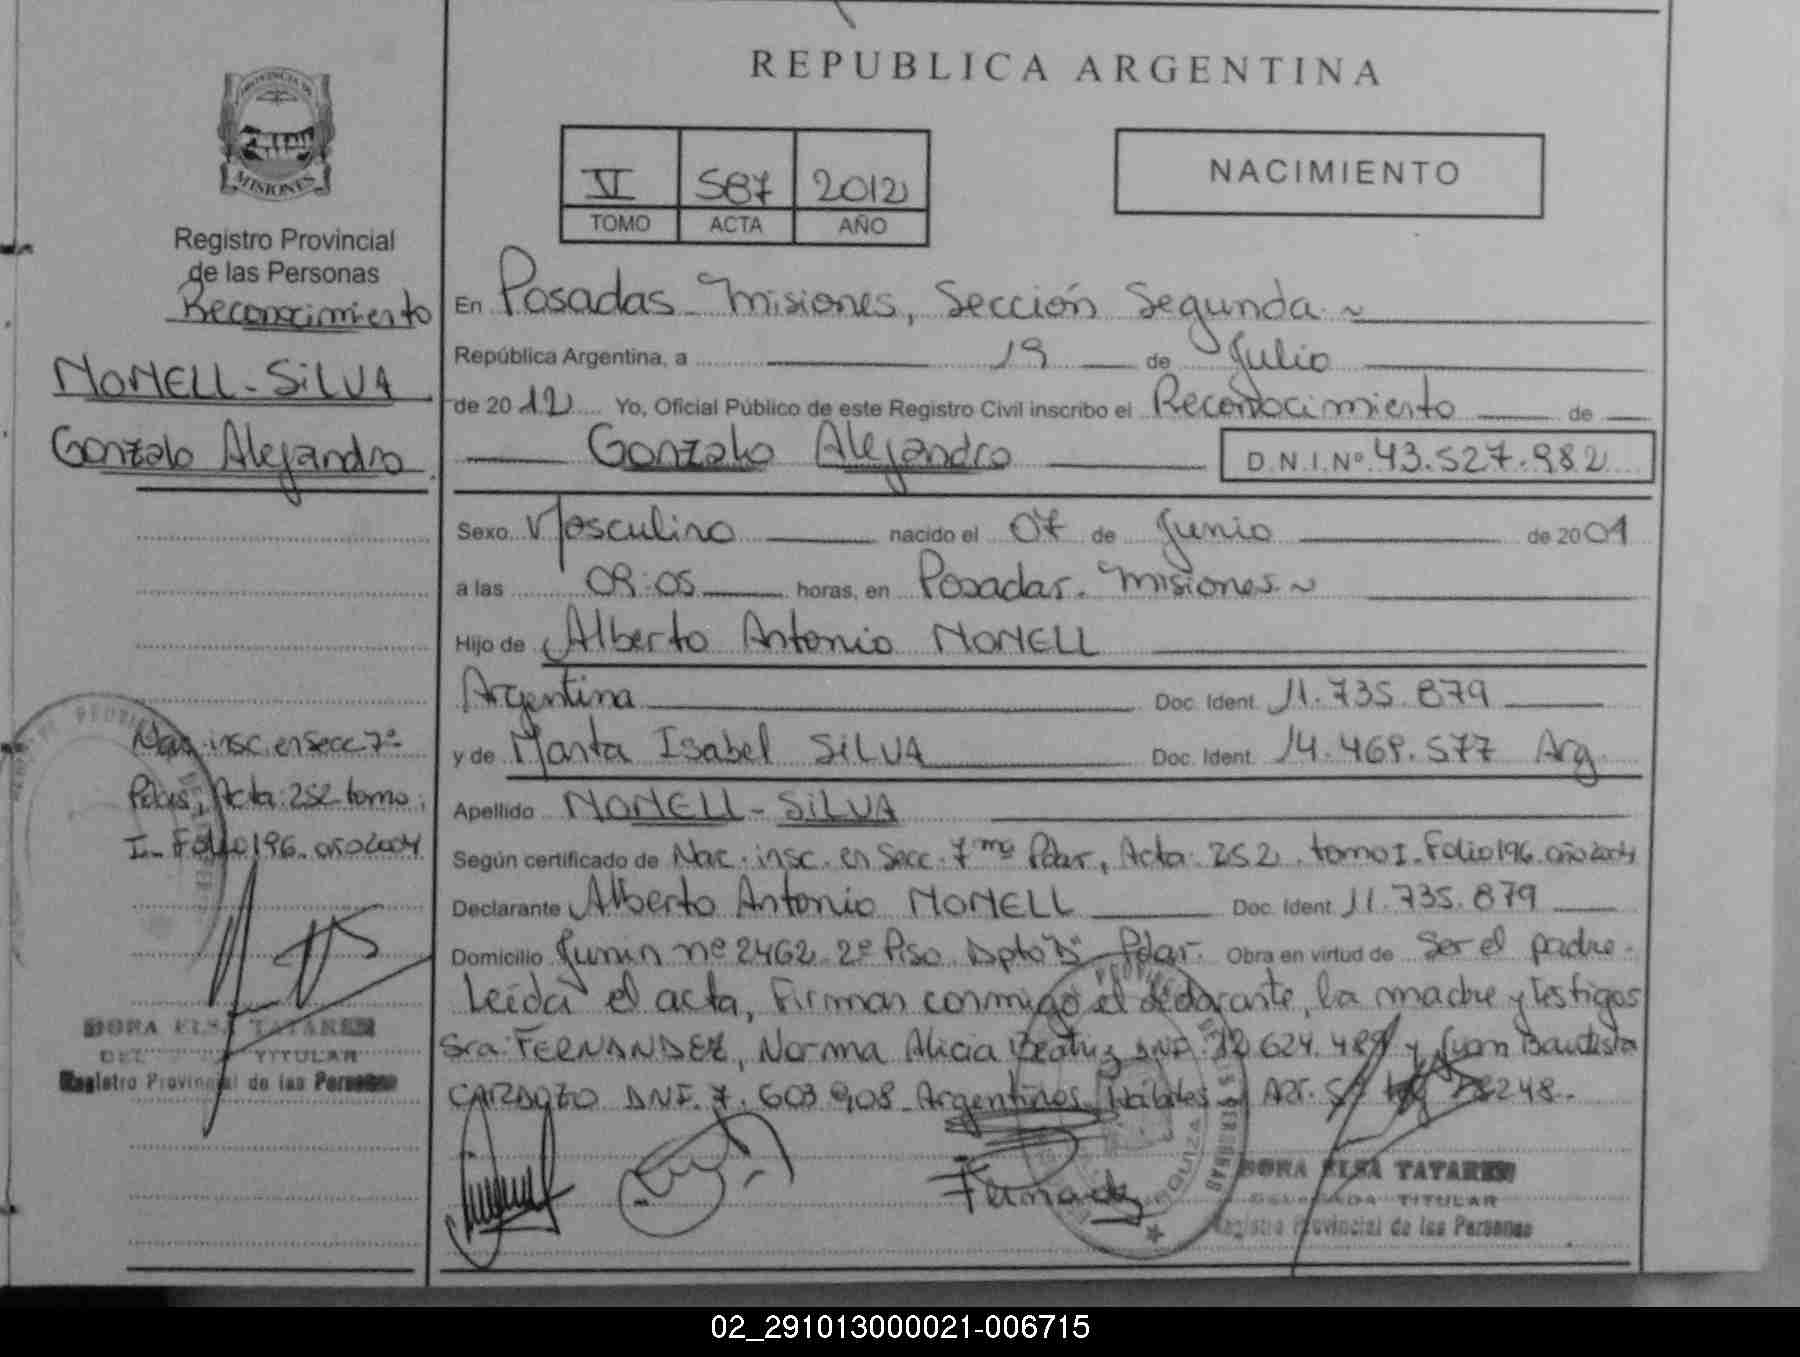 REPUBLICA ARGENTINA
PROVINCIA DE
MISIONES
Registro Provincial
de las Personas
Reconocimiento
MOMELL-SiLVA
Gonzalo Alejandro
Nac. insc. en Secc 7ª
Pdas, Acta 252 tomo
I- Folio 196. año 2001
DORA ELSA TATAREN
TITULAR
Registro Provincial de las Personas
VI 587 2012
TOMO ACTA AÑO
NACIMIENTO
En Posadas Misiones, Sección Segunda
República Argentina, a 19 de Julio
de 2012 Yo, Oficial Público de este Registro Civil inscribo el Reconocimiento de
Gonzalo Alejandro D.N.I.Nº 43.527.982
Sexo Masculino nacido el 07 de Junio de 2001
a las 09:05 horas, en Posadas. Misiones
Hijo de Alberto Antonio MOMELL
Argentina Doc. Ident. 11.735.879
y de Marta Isabel SiLVA Doc. Ident. 14.469.577 Arg
Apellido MOMELL-SiLVA
Según certificado de Nac. insc. en Secc. 7ma Pdas, Acta 252 tomo I. Folio 196. año 2001
Declarante Alberto Antonio MOMELL Doc. Ident. 11.735.879
Domicilio Junin nº 2462 2º Piso Dpto Pdas. Obra en virtud de Ser el padre.
Leída el acta, Firman conmigo el declarante, la madre y testigos
Sra FERNANDEZ, Norma Alicia Beatriz DNI. 12 624.489 y Juan Bautista
CARDOZO DNI. 7. 603 908 Argentinos Hábiles 248.
Fernandez
DORA ELSA TATAREN
DELEGADA TITULAR
Registro Provincial de las Personas
02_291013000021-006715